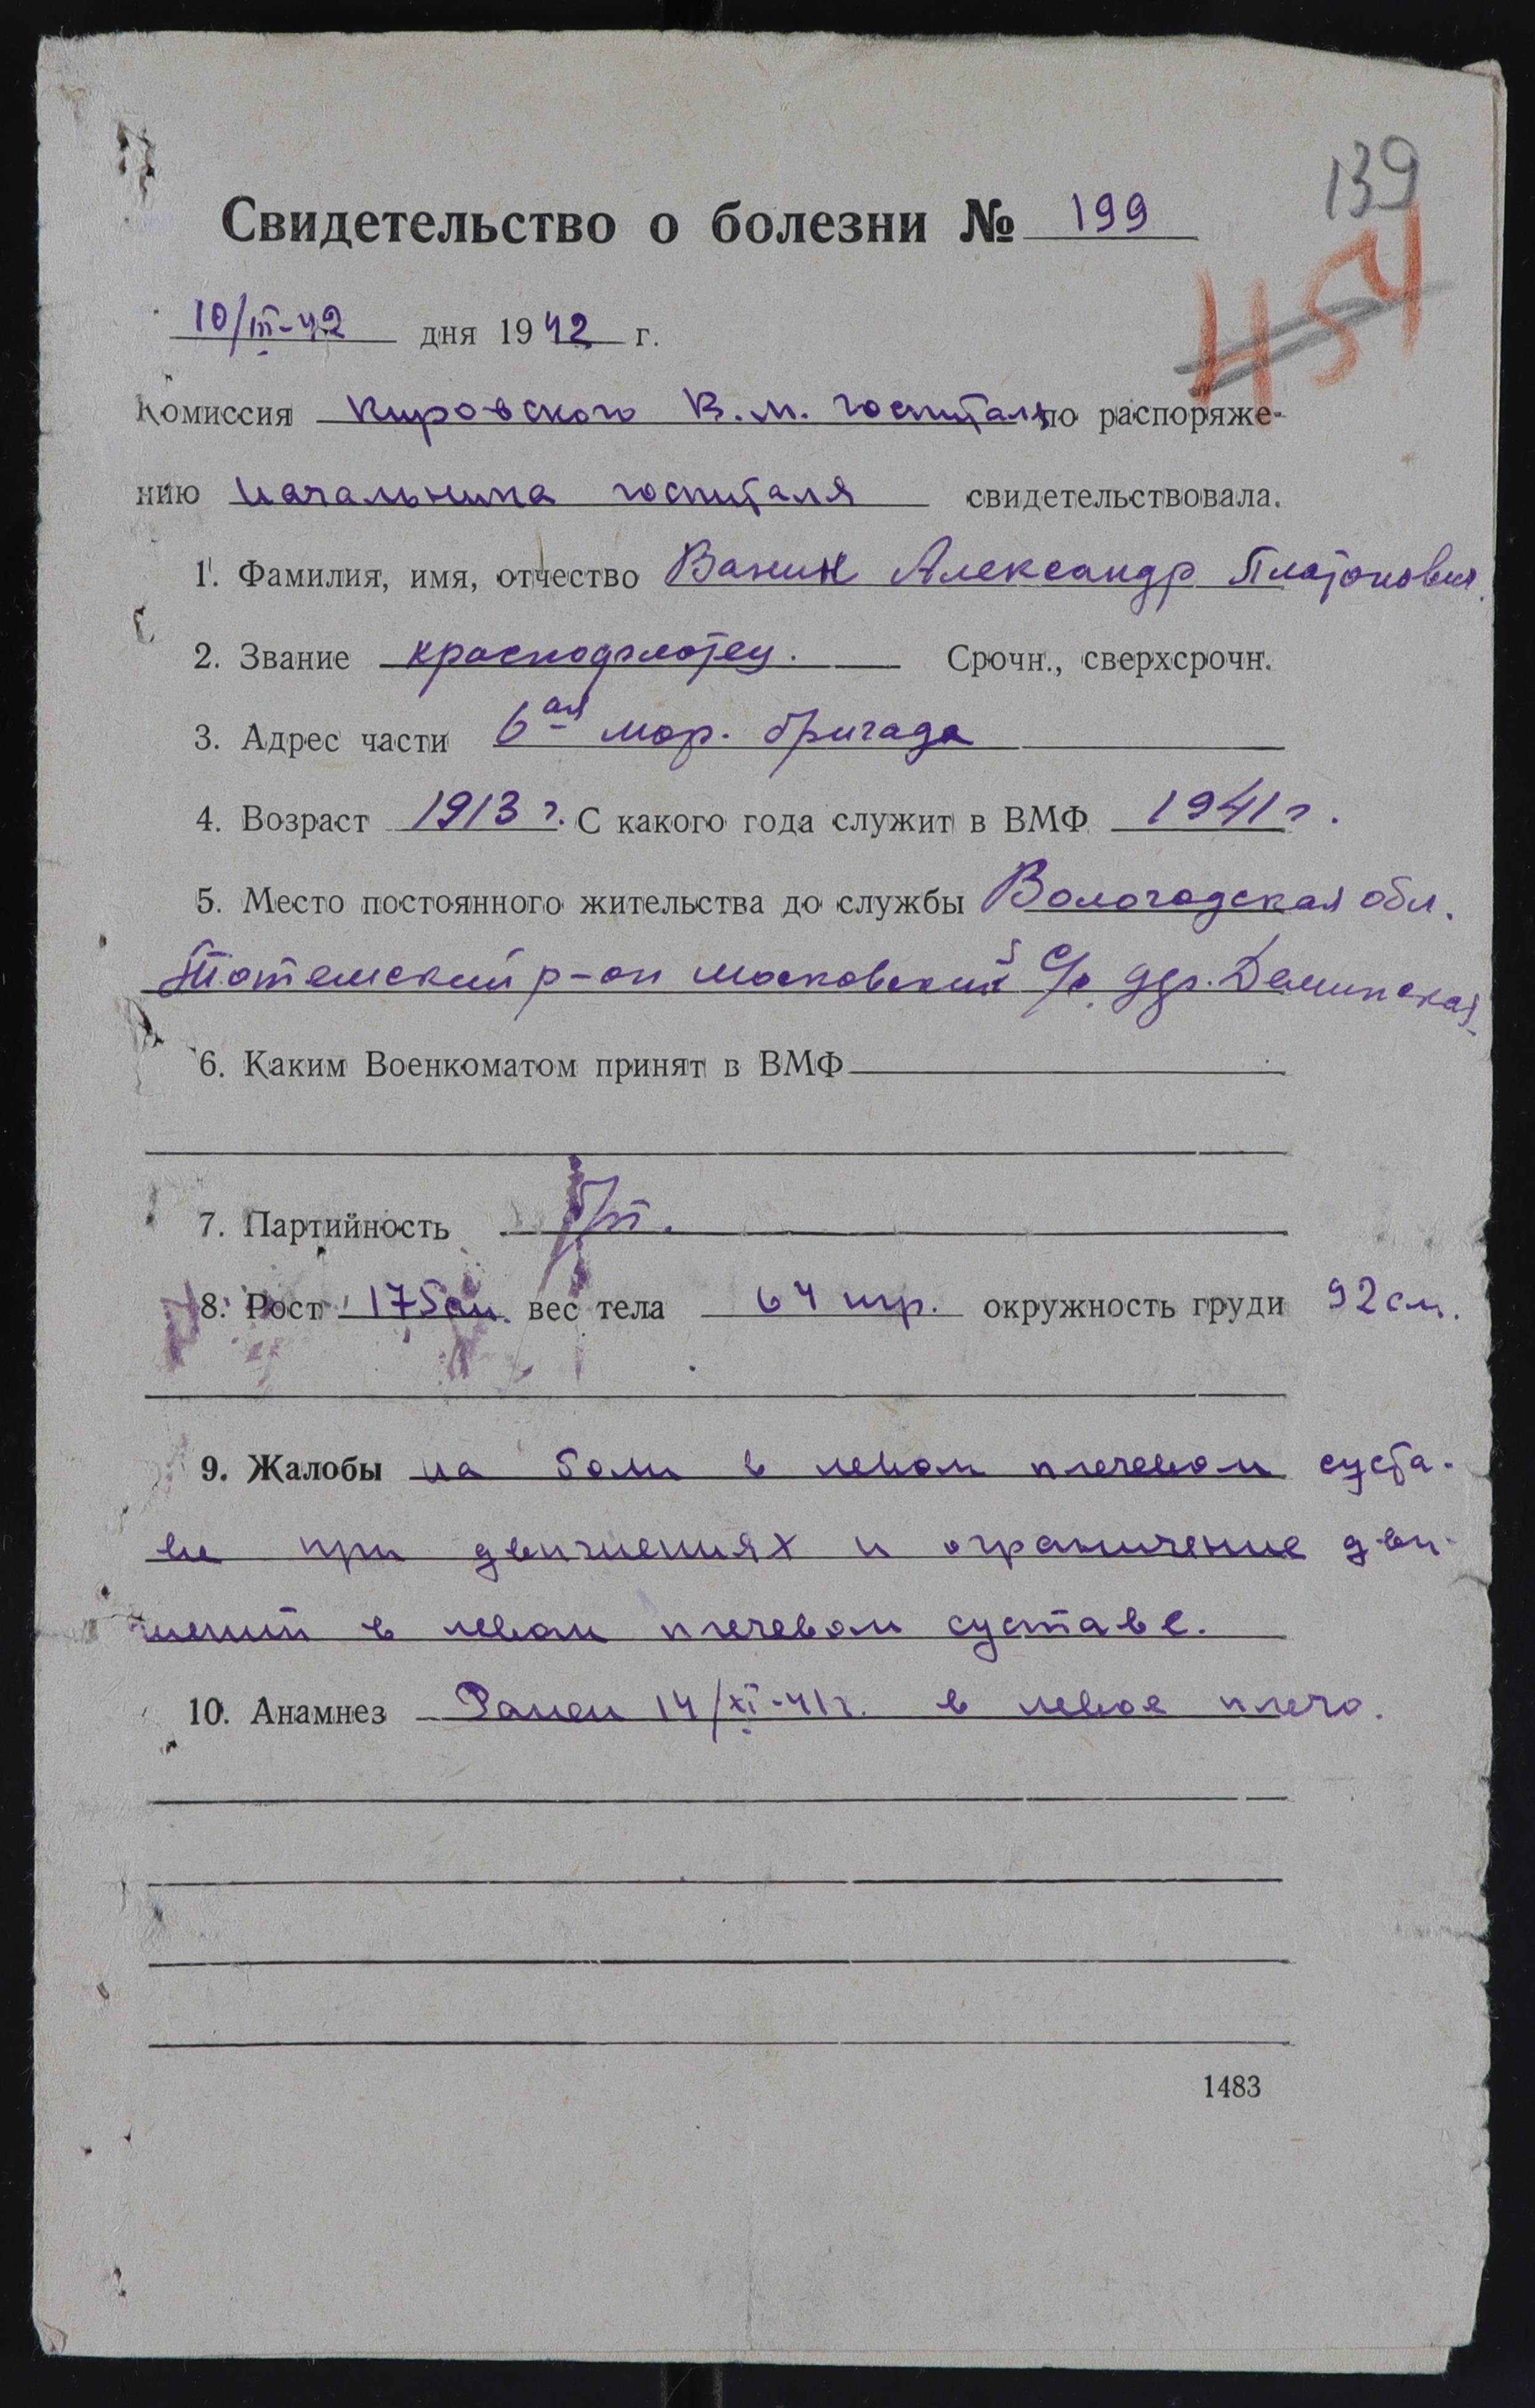 139
Свидетельство о болезни № 199
454
10/III-42 дня 1942 г.
Комиссия Кировского В.м. госпиталя по распоряже-
нию начальника госпиталя свидетельствовала.
1. Фамилия, имя, отчество Ванин Александр Платонович.
2. Звание краснофлотец. Срочн., сверхсрочн.
3. Адрес части 6ая мор. бригада
4. Возраст 1913 г. С какого года служит в ВМФ 1941 г.
5. Место постоянного жительства до службы Вологодская обл.
Тотемский р-он московский с/с. дер. Деминская
6. Каким Военкоматом принят в ВМФ
7. Партийность б/п.
8. Рост 175 см. вес тела 64 кгр. окружность груди 92 см.
9. Жалобы на боли в левом плечевом суста-
ве при движениях и ограничение дви-
жений в левом плечевом суставе.
10. Анамнез Ранен 14/XI-41г. в левое плечо.
1483